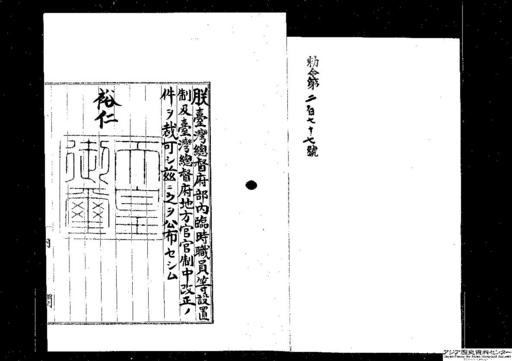 勅令第二百七十七號
朕臺灣總督府部內臨時職員等設置
制及臺灣總督府地方官官制中改正ノ
件ヲ裁可シ茲ニ之ヲ公布セシム
裕仁
天皇
御璽
內閣
アジア歴史資料センター